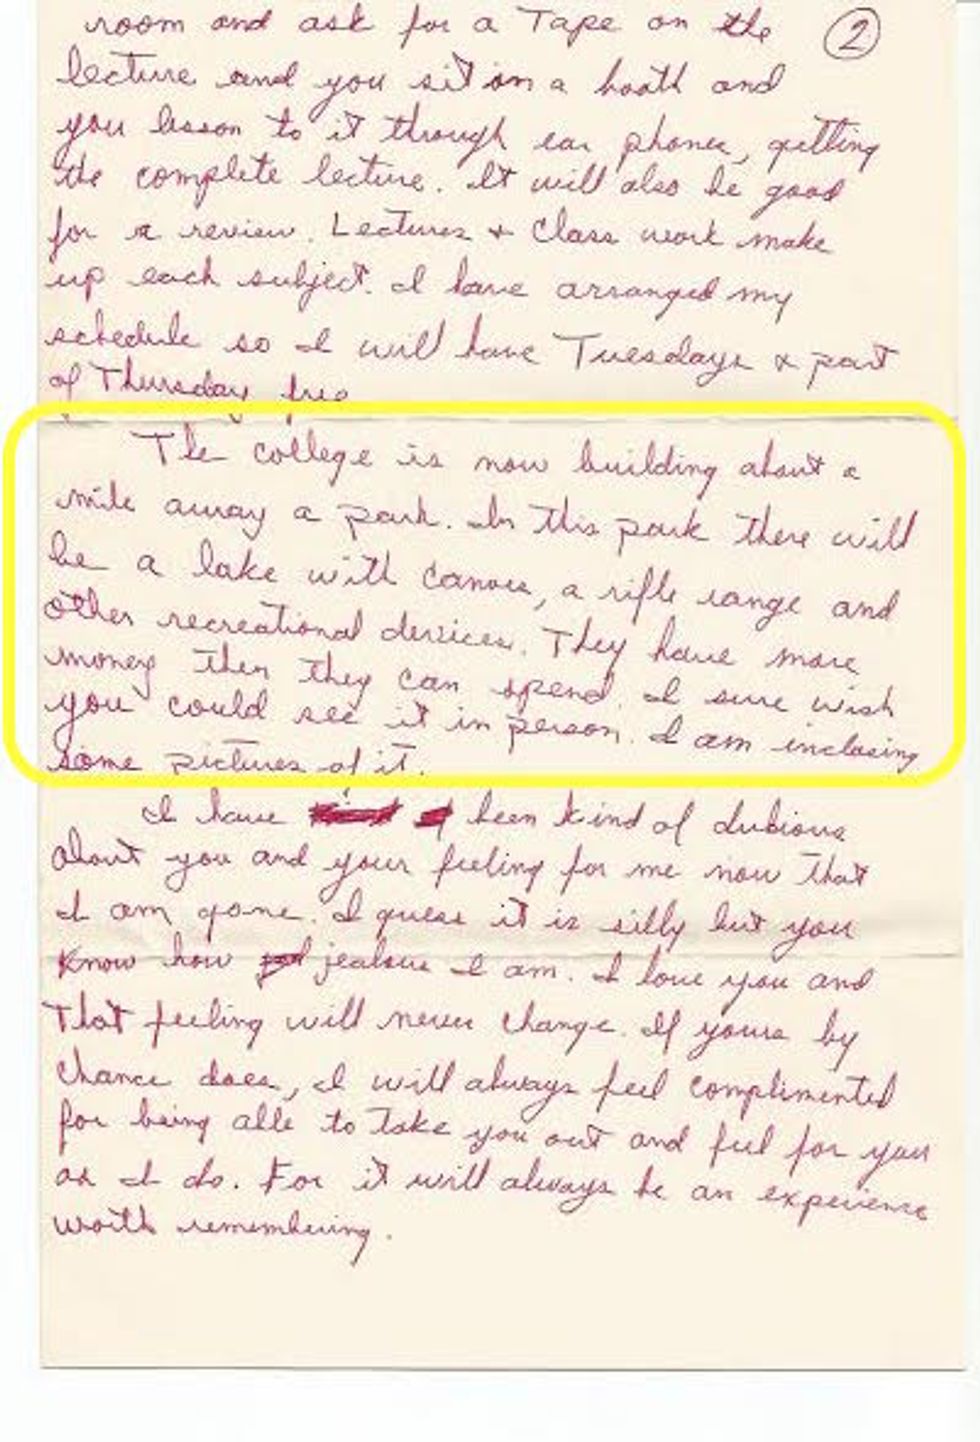 room and ask for a Tape on the (2)
lecture and you sit in a booth and
you lisson to it through ear phones, getting
the complete lecture. It will also be good
for a review. Lectures + Class work make
up each subject. I have arranged my
schedule so I will have Tuesdays & part
of Thursday free
The college is now building about a
mile away a park. In this park there will
be a lake with canoes, a rifle range and
other recreational devices. They have more
money then they can spend. I sure wish
you could see it in person. I am inclosing
some pictures of it.
I have been kind of dubious
about you and your feeling for me now that
I am gone. I guess it is silly but you
know how jealous I am. I love you and
that feeling will never change. If yours by
chance does, I will always feel complimented
for being able to take you out and feel for you
as I do. For it will always be an experience
worth remembering.